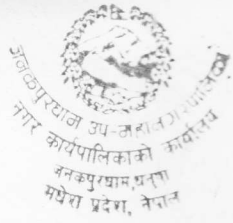 जनकपुरधाम उप-महानगरपालिका
नगर कार्यपालिकाको कार्यालय
जनकपुरधाम, धनुषा
मधेश प्रदेश, नेपाल